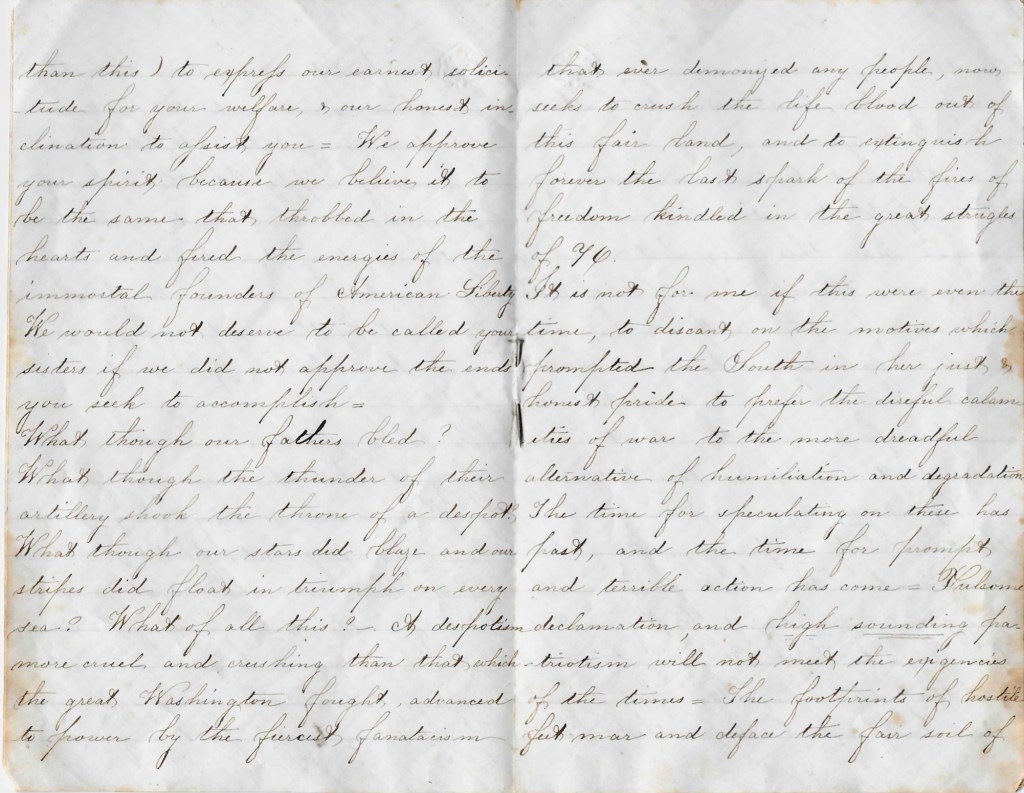 than this) to express our earnest solici-
-tude for your welfare, & our honest in-
clination to assist you = We approve
your spirit because we believe it to
be the same that throbbed in the
hearts and fired the energies of the
immortal founders of American Liberty
We would not deserve to be called your
sisters if we did not approve the ends
you seek to accomplish =
What though our fathers bled ?
What though the thunder of their
artillery shook the throne of a despot?
What though our stars did blaze and our
stripes did float in triumph on every
sea? What of all this? - A despotism
more cruel and crushing than that which
the great Washington fought, advanced
to power by the fiercest fanatacism
that ever demonized any people, now
seeks to crush the life blood out of
this fair land, and to extinguish
forever the last spark of the fires of
freedom kindled in the great strugles
of 76.
It is not for me if this were even the
time, to discant on the motives which
prompted the South in her just &
honest pride to prefer the direful calam-
ities of war to the more dreadful
alternative of humiliation and degradation
The time for speculating on these has
past, and the time for prompt
and terrible action has come = Fulsome
declamation, and high sounding pa-
-triotism will not meet the exigencies
of the times = The footprints of hostile
feet mar and deface the fair soil of